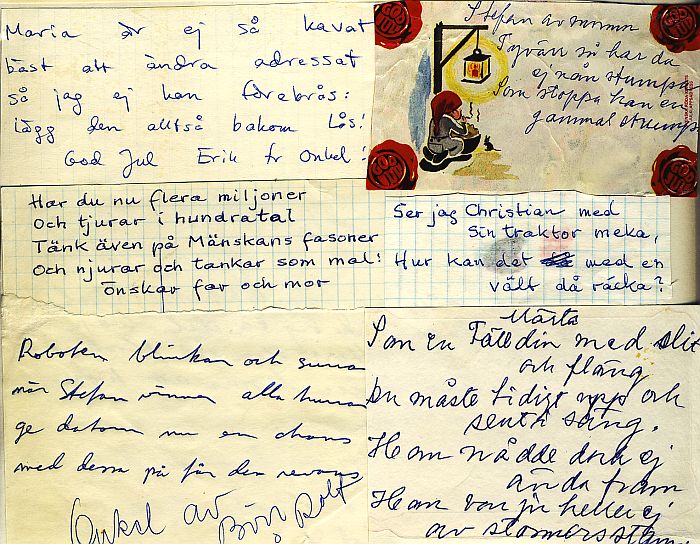 Maria är ej så kavat
bäst att ändra adressat
så jag ej kan förebrås:
lägg den alltså bakom lås!
God Jul Erik fr Onkel!
Stefan av mormor
Tyvärr så har du
ej nån stumpa
Som stoppa kan en
gammal strumpa
GOD JUL
GOD JUL
GOD JUL
GOD JUL
Har du nu flera miljoner
Och tjurar i hundratal
Tänk även på Mänskans fasoner
Och njurar och tankar som mal!
önskar far och mor
Ser jag Christian med
Sin traktor meka,
Hur kan det med en
vält då räcka?
Roboten blinkar och surrar
när Stefan vinner alla hurrar
ge datorn nu en chans
med denna på får den revans
Önskel av
Märta
Som en Fälldin med slit
och fläng
Du måste tidigt upp och
sent i säng.
Han nådde dock ej
ända fram
Han var ju heller ej
av stam